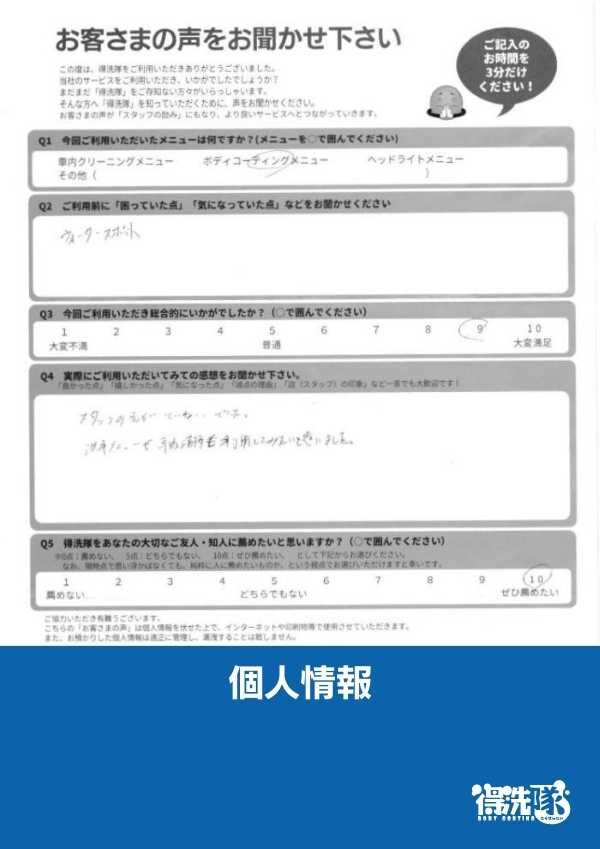 お客さまの声をお聞かせ下さい
ご記入の
お時間を
3分だけ
ください！
この度は、得洗隊をご利用いただきありがとうございました。
当社のサービスをご利用いただき、いかがでしたでしょうか？
まだまだ「得洗隊」をご存知ない方々がいらっしゃいます。
そんな方へ「得洗隊」を知っていただくために、声をお聞かせください。
お客さまの声が「スタッフの励み」にもなり、より良いサービスへとつながっていきます。
Q1 今回ご利用いただいたメニューは何ですか？(メニューを○で囲んでください)
車内クリーニングメニュー ボディコーティングメニュー ヘッドライトメニュー
その他（ ）
Q2 ご利用前に「困っていた点」「気になっていた点」などをお聞かせください
ウォータースポット
Q3 今回ご利用いただき総合的にいかがでしたか？（○で囲んでください）
1 2 3 4 5 6 7 8 9 10
大変不満 普通 大変満足
Q4 実際にご利用いただいてみての感想をお聞かせ下さい。
「良かった点」「嬉しかった点」「気になった点」「減点の理由」「店（スタッフ）の印象」など一言でも大歓迎です！
スタッフの方がていねいです。
洗車メニューも 利用してみたいと感じました。
Q5 得洗隊をあなたの大切なご友人・知人に薦めたいと思いますか？（○で囲んでください）
※0点：薦めない、 5点：どちらでもない、 10点：ぜひ薦めたい、 として下記からお選びください。
なお、現時点で思い浮かばなくても、純粋に人に薦めたいものか、という視点でお選びいただけますと幸いです。
1 2 3 4 5 6 7 8 9 10
薦めない… どちらでもない ぜひ薦めたい
ご協力いただき有難うございます。
こちらの「お客さまの声」は個人情報を伏せた上で、インターネットや印刷物等で使用させていただきます。
また、お預かりした個人情報は適正に管理し、漏洩することは致しません。
個人情報
得洗隊
BODY COATING